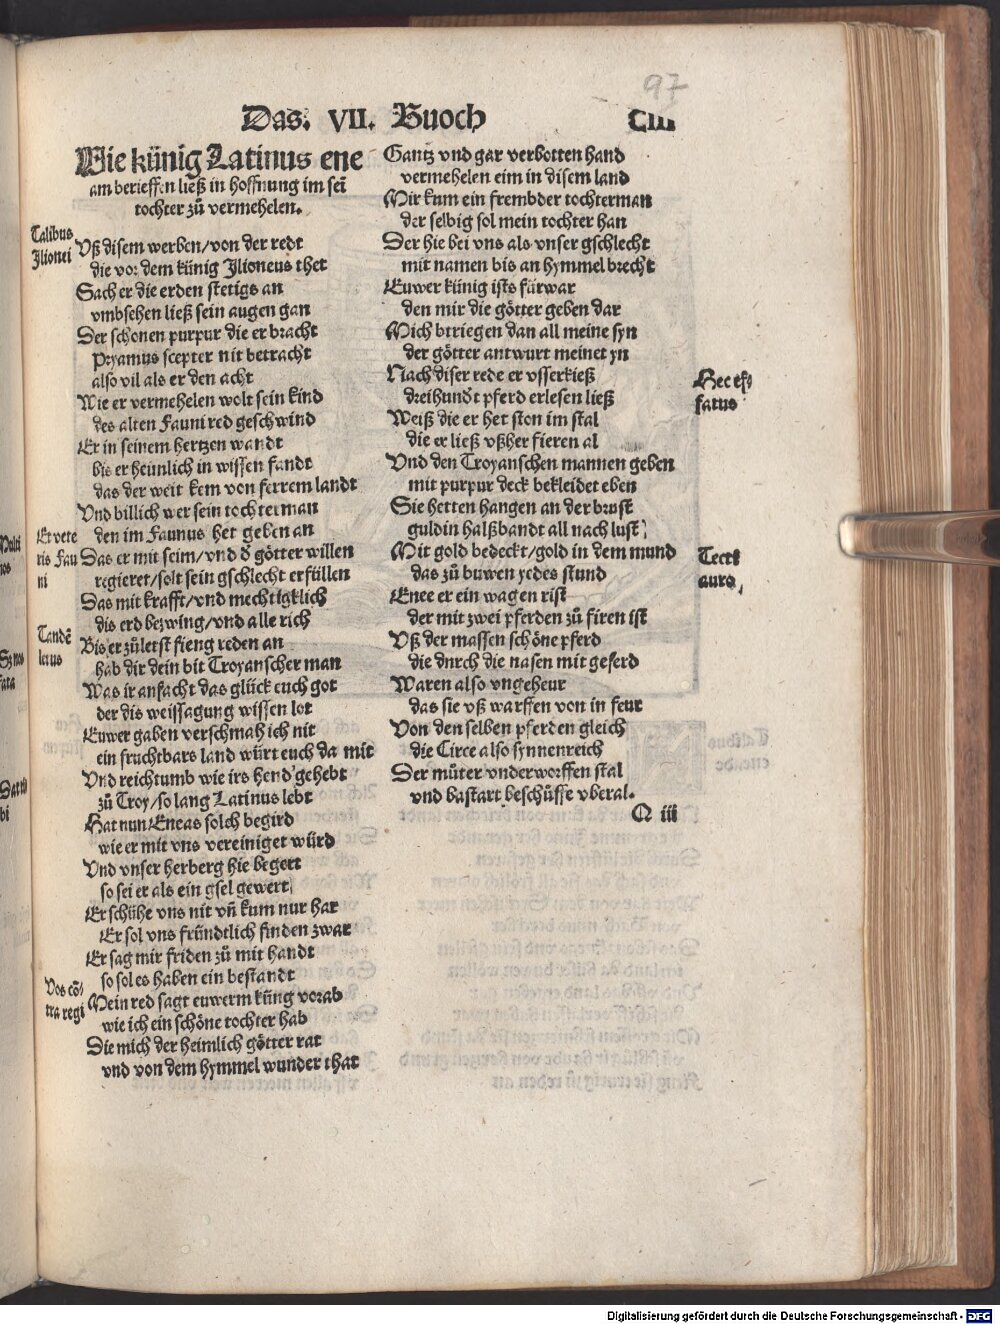 97
Das. VII. Buoch CIII
Wie künig Latinus ene
am berieffen ließ in hoffnung im sein̄
tochter zů vermehelen.
Talibus
Jlionei
Vß disem werben/von der redt
die vor dem künig Jlioneus thet
Sach er die erden stetigs an
vmbsehen ließ sein augen gan
Der schonen purpur die er bracht
Pryamus scepter nit betracht
also vil als er den acht
Wie er vermehelen wolt sein kind
des alten Fauni red geschwind
Er in seinem hertzen wandt
bis er heimlich in wissen fandt
das der weit kem von ferrem landt
Vnd billich wer sein tochterman
Et vete
ris Fau
ni
den im Faunus het geben an
Das er mit seim/vnd d̄ götter willen
regieret/solt sein gschlecht erfüllen
Das mit krafft/vnd mechtigklich
dis erd bezwing/vnd alle rich
Tandē
letus
Bis er zůletst fieng reden an
hab dir dein bit Troyanscher man
Was ir anfacht das glück euch got
der dis weissagung wissen lot
Euwer gaben verschmah ich nit
ein fruchtbars land würt euch da mit
Vnd reichtumb wie irs hend gehebt
zů Troy/so lang Latinus lebt
Hat nun Eneas solch begird
wie er mit vns vereiniget würd
Vnd vnser herberg hie begert
so sei er als ein gsel gewert
Er schühe vns nit vn̄ kum nur har
Er sol vns fründtlich finden zwar
Er sag mir friden zů mit handt
so sol es haben ein bestandt
Vos cō/
tra regi
Mein red sagt euwerm küng vorab
wie ich ein schöne tochter hab
Die mich der heimlich götter rat
vnd von dem hymmel wunder that
Gantz vnd gar verbotten hand
vermehelen eim in disem land
Mir kum ein frembder tochterman
der selbig sol mein tochter han
Der hie bei vns als vnser gschlecht
mit namen bis an hymmel brecht
Euwer künig ists fürwar
den mir die götter geben dar
Mich btriegen dan all meine syn
der götter antwurt meinet yn
Nach diser rede er vsserkieß
Hec ef/
fatus
dreihund̄t pferd erlesen ließ
Weiß die er het ston im stal
die er ließ vßher fieren al
Vnd den Troyanschen mannen geben
mit purpur deck bekleidet eben
Sie hetten hangen an der brust
guldin halßbandt all nach lust
Mit gold bedeckt/gold in dem mund
Tecti
auro,
das zů buwen yedes stund
Enee er ein wagen rist
der mit zwei pferden zů firen ist
Vß der massen schöne pferd
die dnrch die nasen mit geferd
Waren also vngeheur
das sie vß warffen von in feur
Von den selben pferden gleich
die Circe also synnenreich
Der můter vnderworffen stal
vnd bastart beschüsse vberal.
Q iii
Digitalisierung gefördert durch die Deutsche Forschungsgemeinschaft - DFG